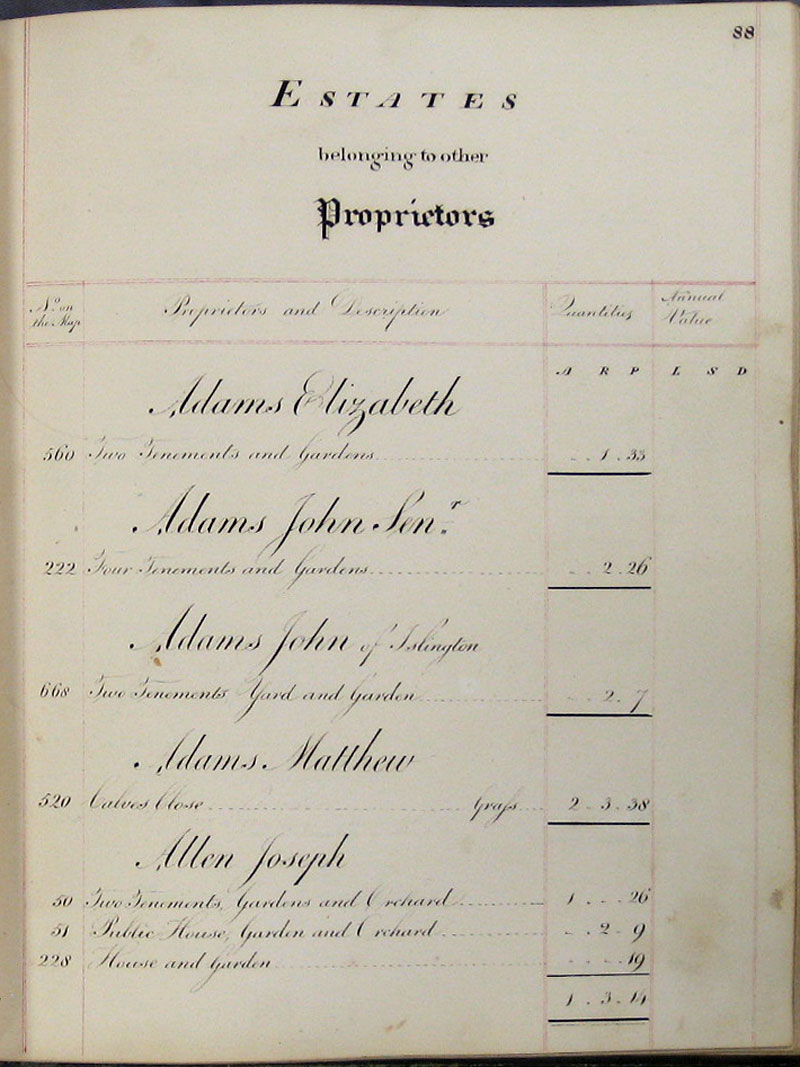 88
ESTATES
belonging to other
Proprietors
No. on the Map Proprietors and Description Quantities Annual Value
A R P L S D
Adams Elizabeth
560 Two Tenements and Gardens . . 1 . 33
Adams John Senr.
222 Four Tenements and Gardens . . 2 . 26
Adams John of Islington
668 Two Tenements, Yard and Garden . . 2 . 7
Adams Matthew
520 Calves Close Grass 2 . 3 . 38
Allen Joseph
50 Two Tenements, Gardens and Orchard 1 . . . 26
51 Public House, Garden and Orchard . . 2 . 9
228 House and Garden . . . . 19
1 . 3 . 14